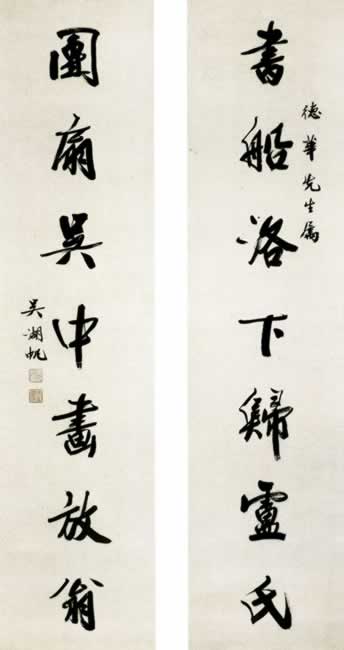 書船洛下歸盧氏
德華先生属
團扇吳中畫放翁
吳湖帆